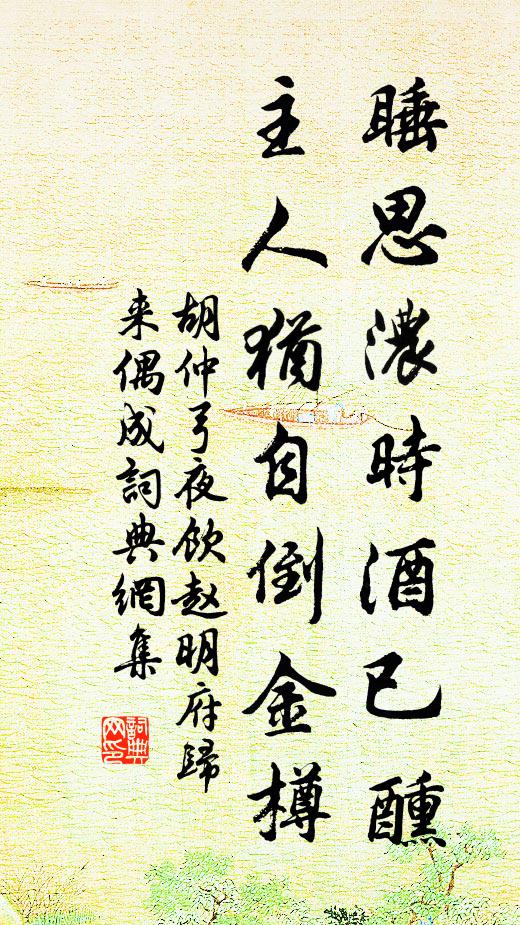 睡思濃時酒已醺
主人猶自倒金樽
胡仲弓夜飲赵明府歸
来偶成詞典網集
詞典网印